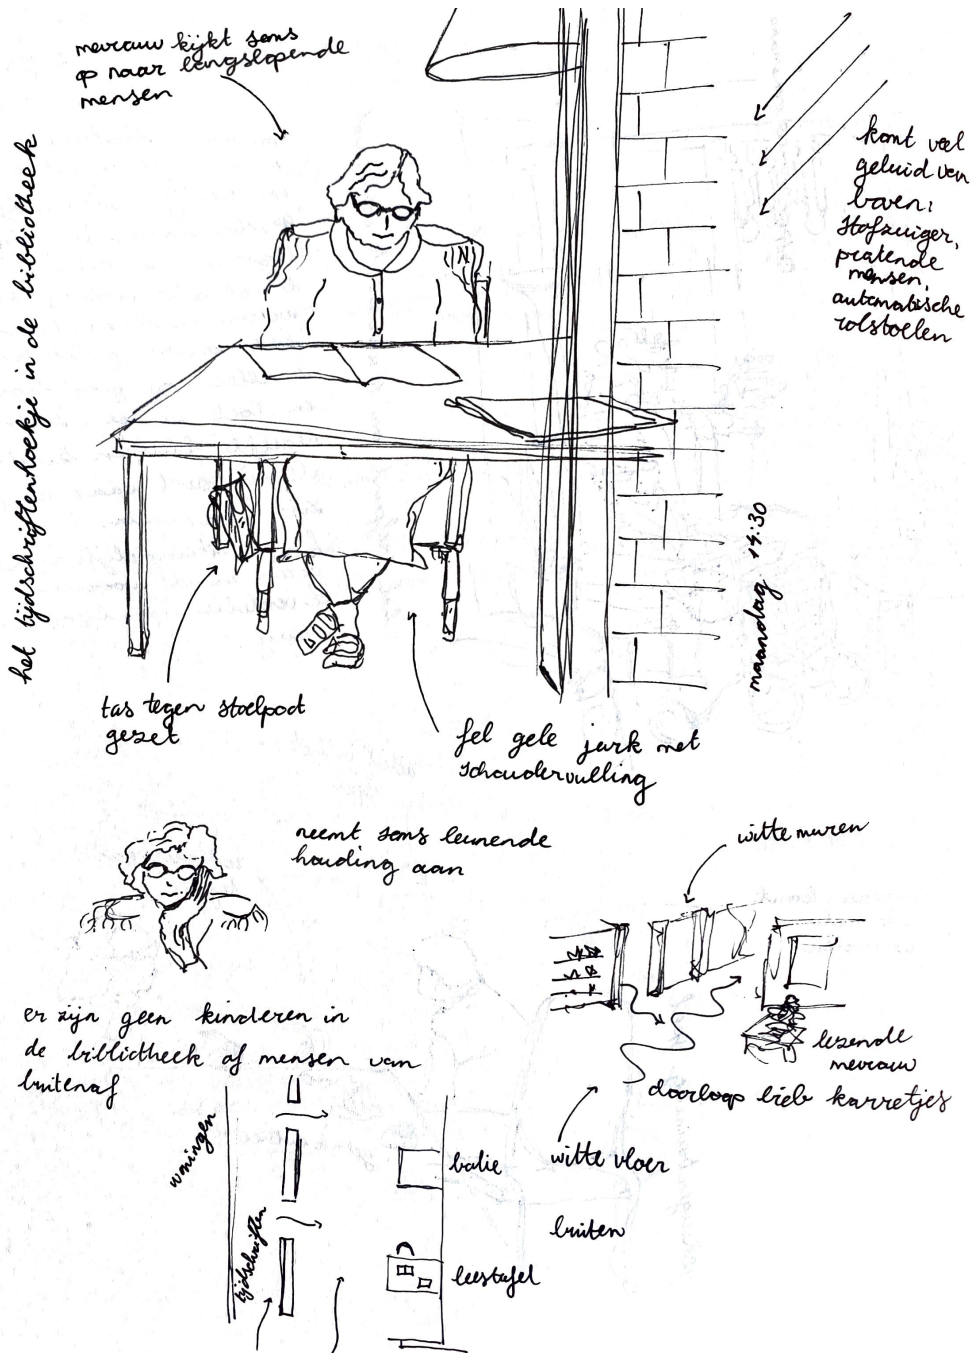 het tijdschriftenhoekje in de bibliotheek
mevrouw kijkt soms
op naar langslopende
mensen
komt veel
geluid van
boven:
stofzuiger,
pratende
mensen,
automatische
rolstoelen
maandag 14:30
tas tegen stoelpoot
gezet
fel gele jurk met
schoudervulling
neemt soms leunende
houding aan
witte muren
lezende
mevrouw
doorloop bieb karretjes
witte vloer
er zijn geen kinderen in
de bibliotheek of mensen van
buitenaf
woningen
tijdschriften
balie
leestafel
buiten